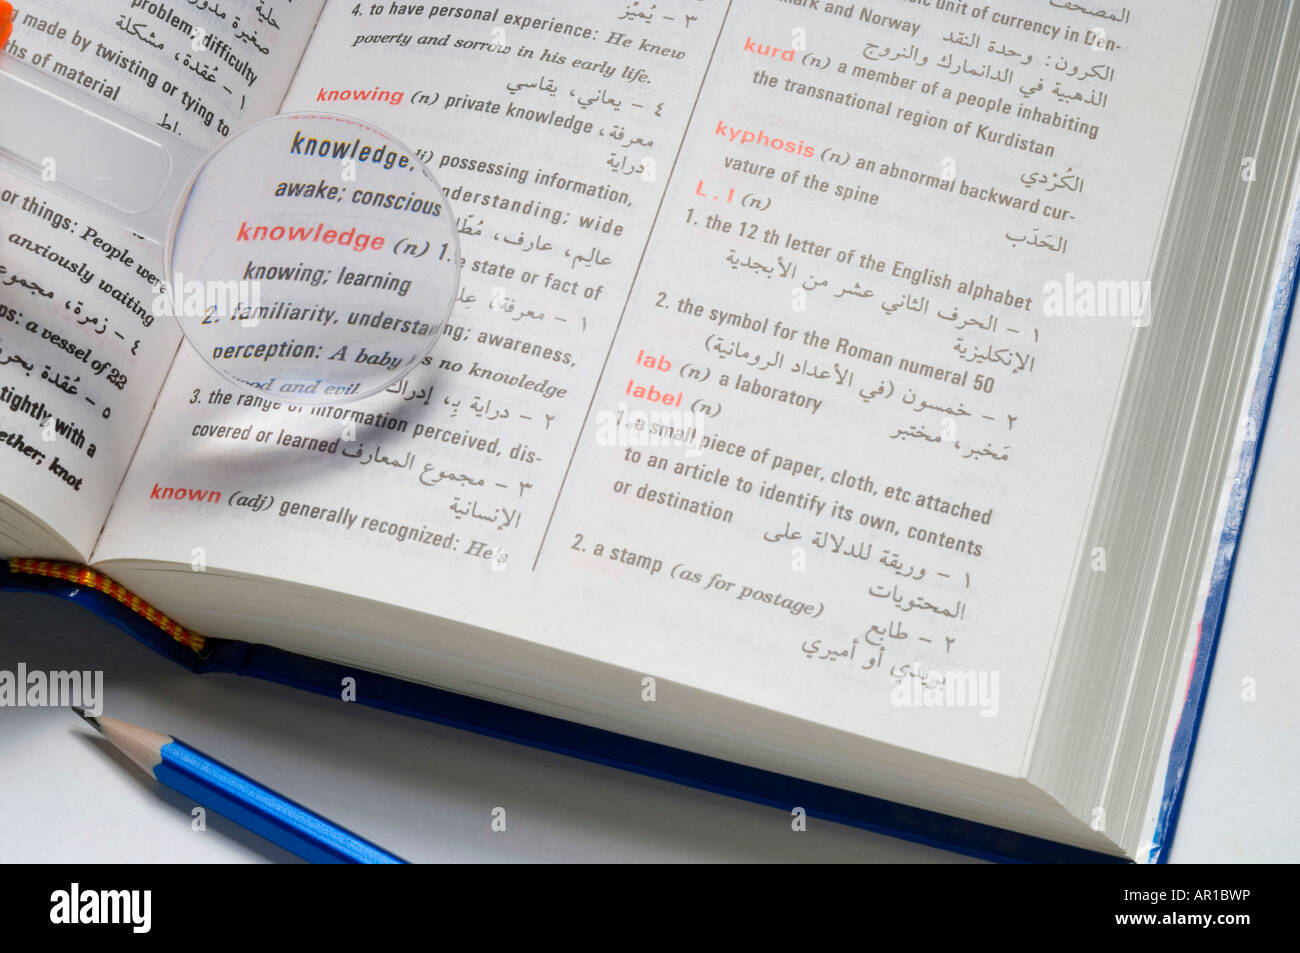 problem, difficulty
made by twisting or tying to
ths of material
١ - عُقدة، مشكلة
or things: People were
anxiously waiting
٤ - زمرة، مجموعة
a vessel of 22
٥ - عُقدة بحرية
tightly with a
knot
٣ - يُميّز
4. to have personal experience: He knew
poverty and sorrow in his early life.
٤ - يعاني، يقاسي
knowing (n) private knowledge
معرفة،
دراية
knowledge,
possessing information,
understanding; wide
awake; conscious
عالِم، عارف،
knowledge (n) 1.
state or fact of
knowing; learning
١ - معرفة،
2. familiarity, understanding; awareness,
perception: A baby
no knowledge
good and evil
٢ - دراية بِ، إدراك
3. the range of information perceived, dis-
covered or learned
٣ - مجموع المعارف
الإنسانية
known (adj) generally recognized: He's
unit of currency in Den-
mark and Norway
المصحف
الكرون: وحدة النقد
الذهبية في الدانمارك والنروج
kurd (n) a member of a people inhabiting
the transnational region of Kurdistan
الكُرْدي
kyphosis (n) an abnormal backward cur-
vature of the spine
الحَدَب
L , l (n)
1. the 12 th letter of the English alphabet
١ - الحرف الثاني عشر من الأبجدية
الإنكليزية
2. the symbol for the Roman numeral 50
٢ - خمسون (في الأعداد الرومانية)
lab (n) a laboratory
مَخبر، مختبر
label (n)
1. a small piece of paper, cloth, etc attached
to an article to identify its own, contents
or destination
١ - وريقة للدلالة على
المحتويات
2. a stamp (as for postage)
٢ - طابع
بريدي أو أميري
alamy
a
alamy
Image ID: AR1BWP
www.alamy.com